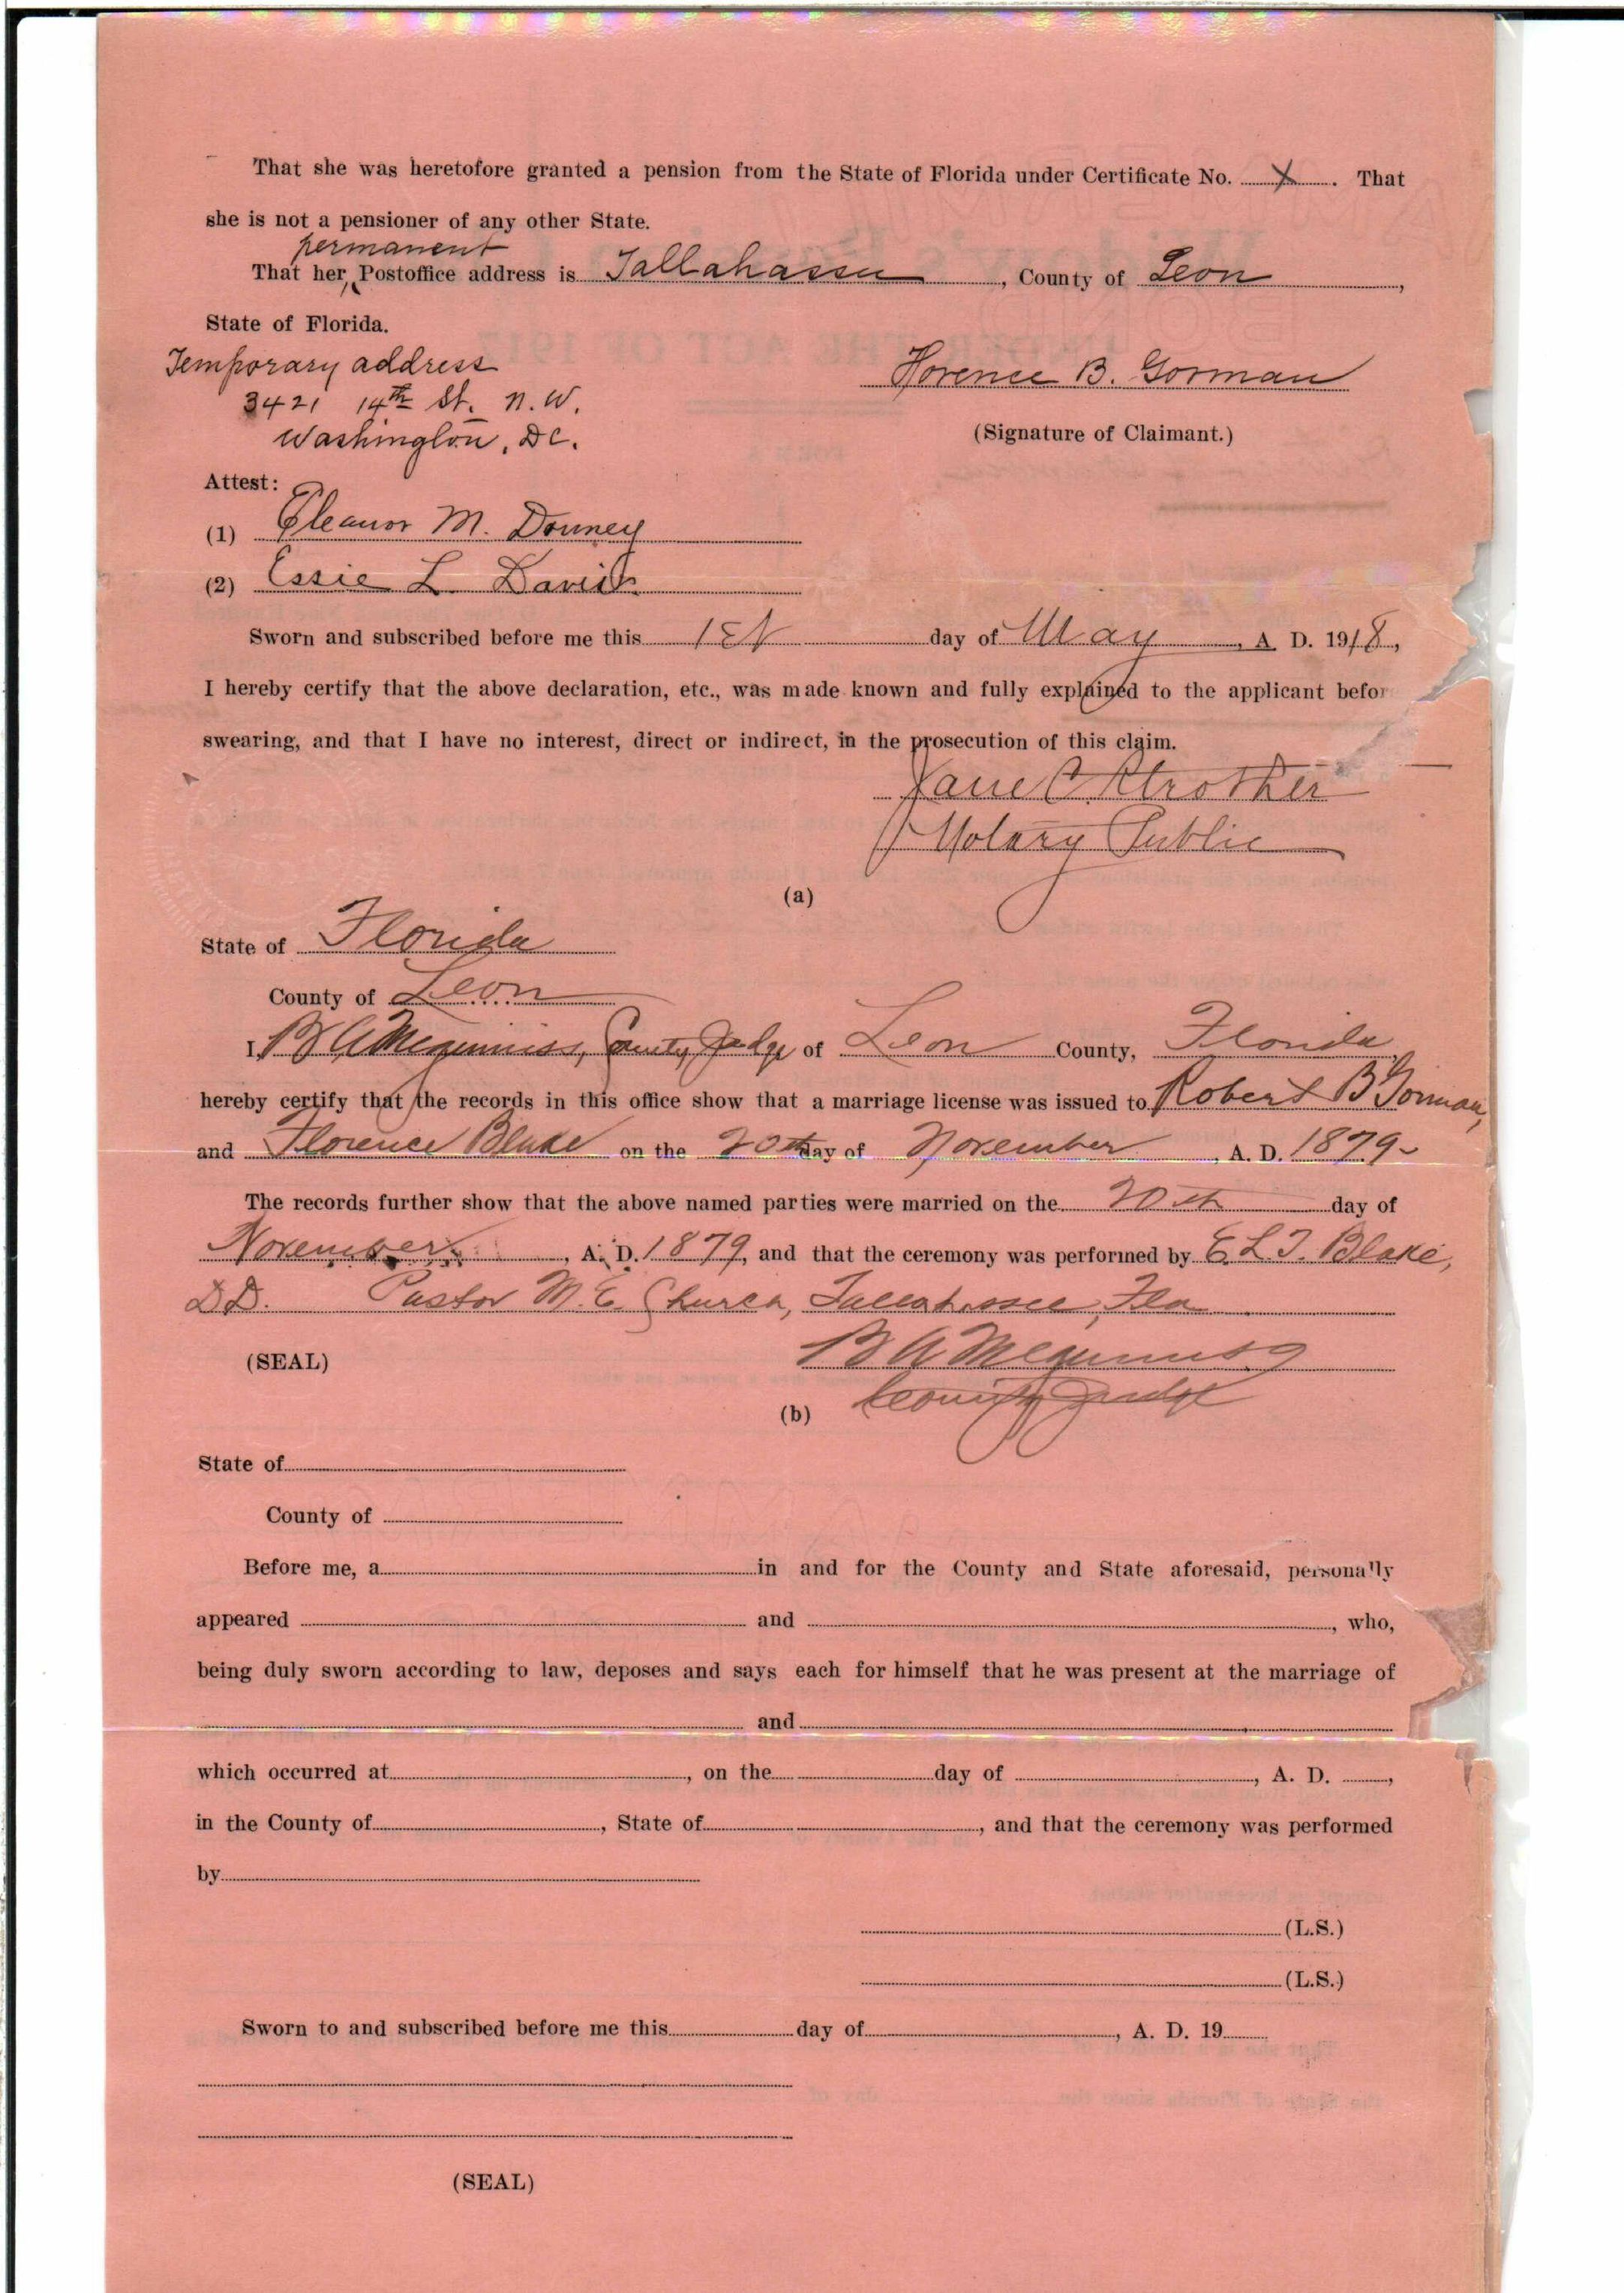 That she was heretofore granted a pension from the State of Florida under Certificate No. X. That
she is not a pensioner of any other State.
permanent
That her Postoffice address is Tallahassee, County of Leon,
State of Florida.
Temporary address
3421 14th St. N.W.
Washington, DC.
Florence B. Gorman
(Signature of Claimant.)
Attest:
(1) Eleanor M. Downey
(2) Essie L. Davis
Sworn and subscribed before me this 1st day of May, A. D. 1918,
I hereby certify that the above declaration, etc., was made known and fully explained to the applicant befor
swearing, and that I have no interest, direct or indirect, in the prosecution of this claim.
Strother
Notary Public
(a)
State of Florida
County of Leon
I, B A Meginniss, County Judge of Leon County, Florida
hereby certify that the records in this office show that a marriage license was issued to Robert B Gorman,
and Florence Blake on the 20th day of November, A. D. 1879-
The records further show that the above named parties were married on the 20th day of
November, A. D. 1879, and that the ceremony was performed by E L T. Blake,
D.D. Pastor M. E. Church, Tallahassee, Fla
(SEAL)
B A Meginniss
County Judge
(b)
State of
County of
Before me, a in and for the County and State aforesaid, personally
appeared and , who,
being duly sworn according to law, deposes and says each for himself that he was present at the marriage of
and
which occurred at , on the day of , A. D. ,
in the County of , State of , and that the ceremony was performed
by
(L.S.)
(L.S.)
Sworn to and subscribed before me this day of , A. D. 19
(SEAL)